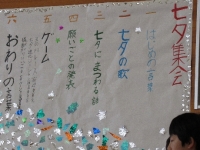 七夕集会
一 はじめの言葉
二 七夕の歌
三 七夕にまつわる話
四 願いごとの発表
五 ゲーム
六 おわりの言葉